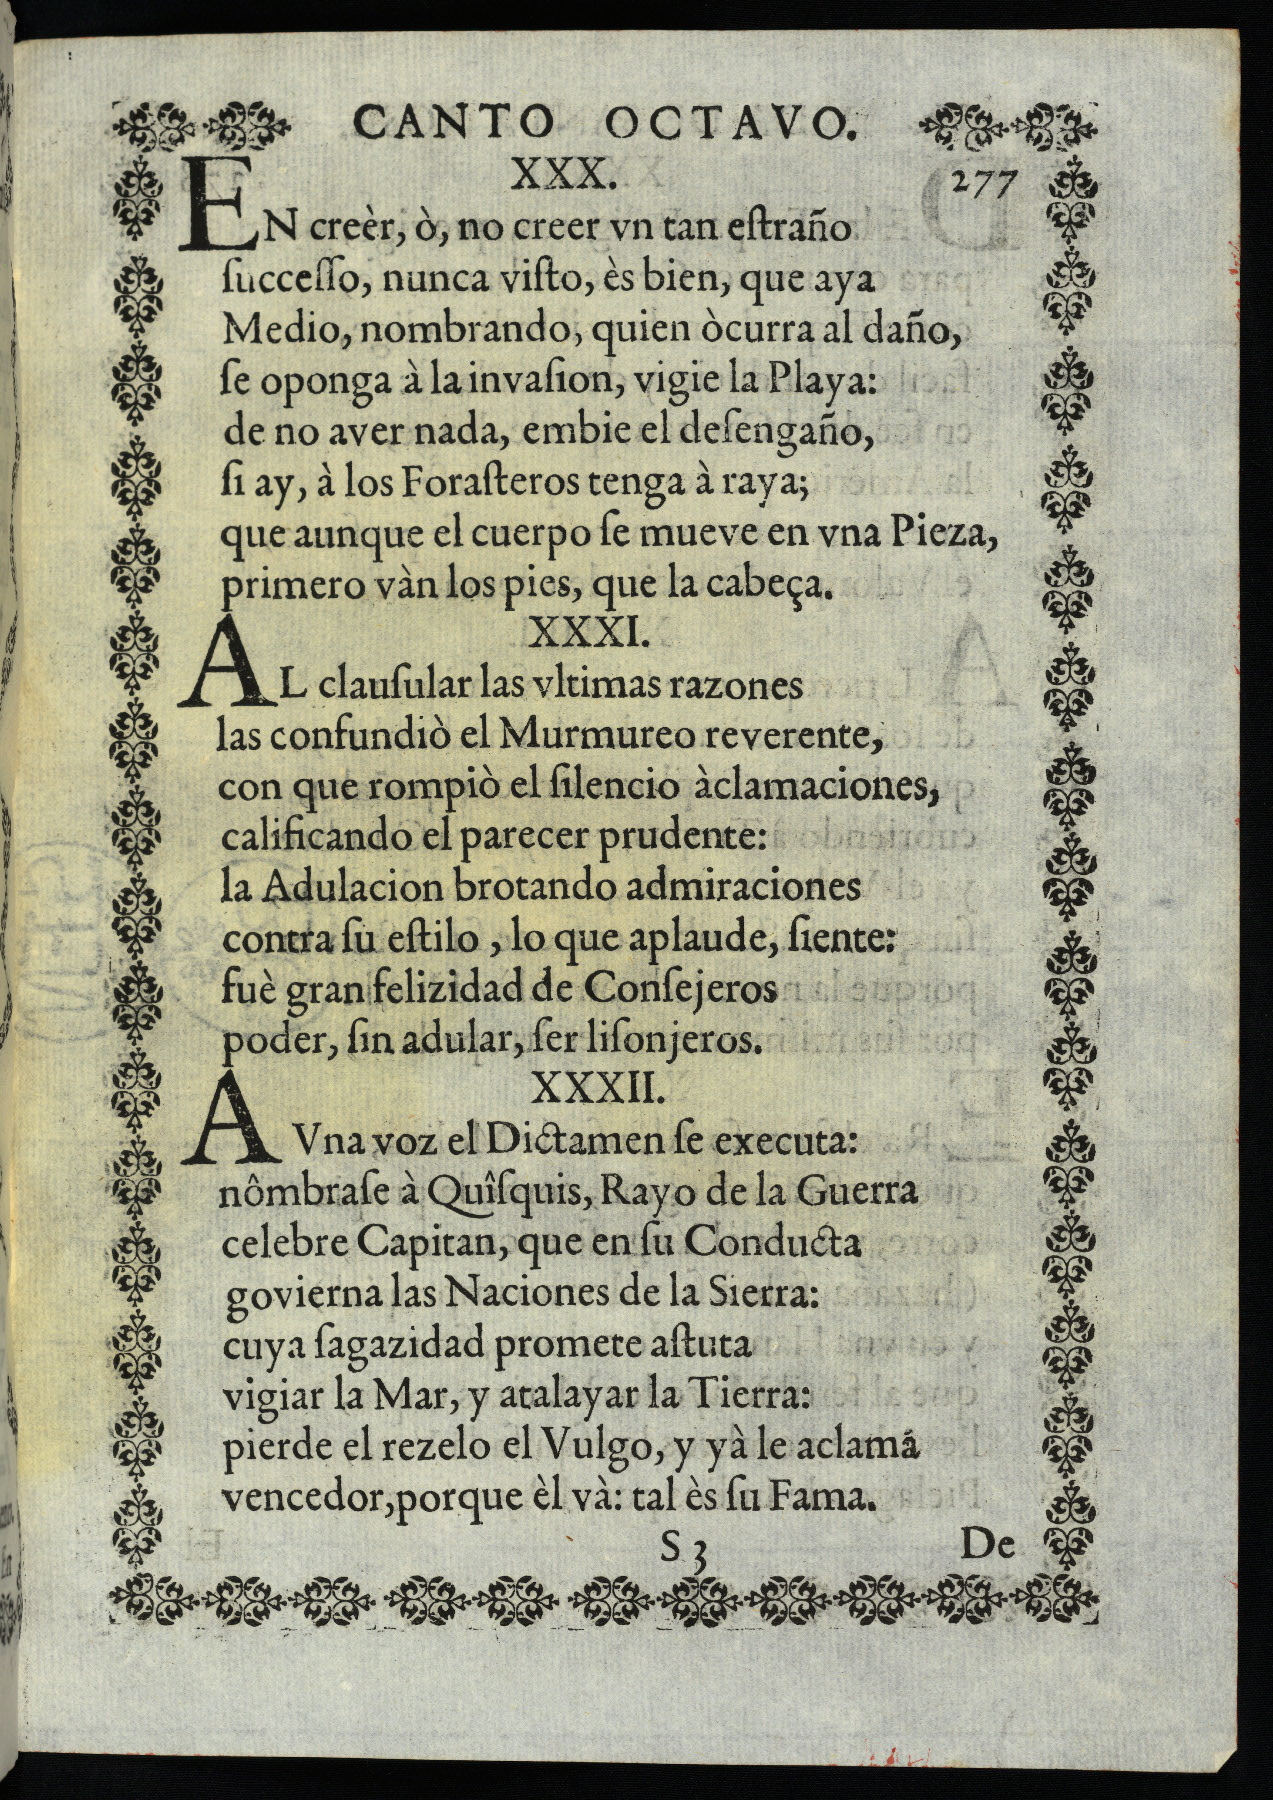 CANTO OCTAVO.
XXX. 277
EN creèr, ò, no creer vn tan eſtraño
ſucceſſo, nunca viſto, ès bien, que aya
Medio, nombrando, quien òcurra al daño,
ſe oponga à la invaſion, vigie la Playa:
de no aver nada, embie el deſengaño,
ſi ay, à los Foraſteros tenga à raya;
que aunque el cuerpo ſe mueve en vna Pieza,
primero vàn los pies, que la cabeça.
XXXI.
AL clauſular las vltimas razones
las confundiò el Murmureo reverente,
con que rompiò el ſilencio àclamaciones,
calificando el parecer prudente:
la Adulacion brotando admiraciones
contra ſu eſtilo , lo que aplaude, ſiente:
fuè gran felizidad de Conſejeros
poder, ſin adular, ſer liſonjeros.
XXXII.
A Vna voz el Dictamen ſe executa:
nômbraſe à Quîſquis, Rayo de la Guerra
celebre Capitan, que en ſu Conducta
govierna las Naciones de la Sierra:
cuya ſagazidad promete aſtuta
vigiar la Mar, y atalayar la Tierra:
pierde el rezelo el Vulgo, y yà le aclamá
vencedor,porque èl và: tal ès ſu Fama.
S 3 De